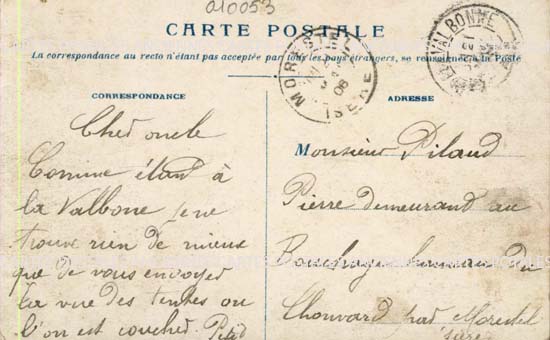 010053
CARTE POSTALE
La correspondance au recto n'étant pas acceptée par tous les pays étrangers, se renseigner à la Poste
MORESTEL
08
ISERE
LA VALBONNE
CORRESPONDANCE
ADRESSE
Cher oncle
Comme étant à
la Valbone je ne
trouve rien de mieux
que de vous envoyer
la vue des tentes ou
l'on est couché. Petit
Monsieur Pilaud
Pierre demeurant au
Bouchage hameau du
Chouvard par Morestel
Isère